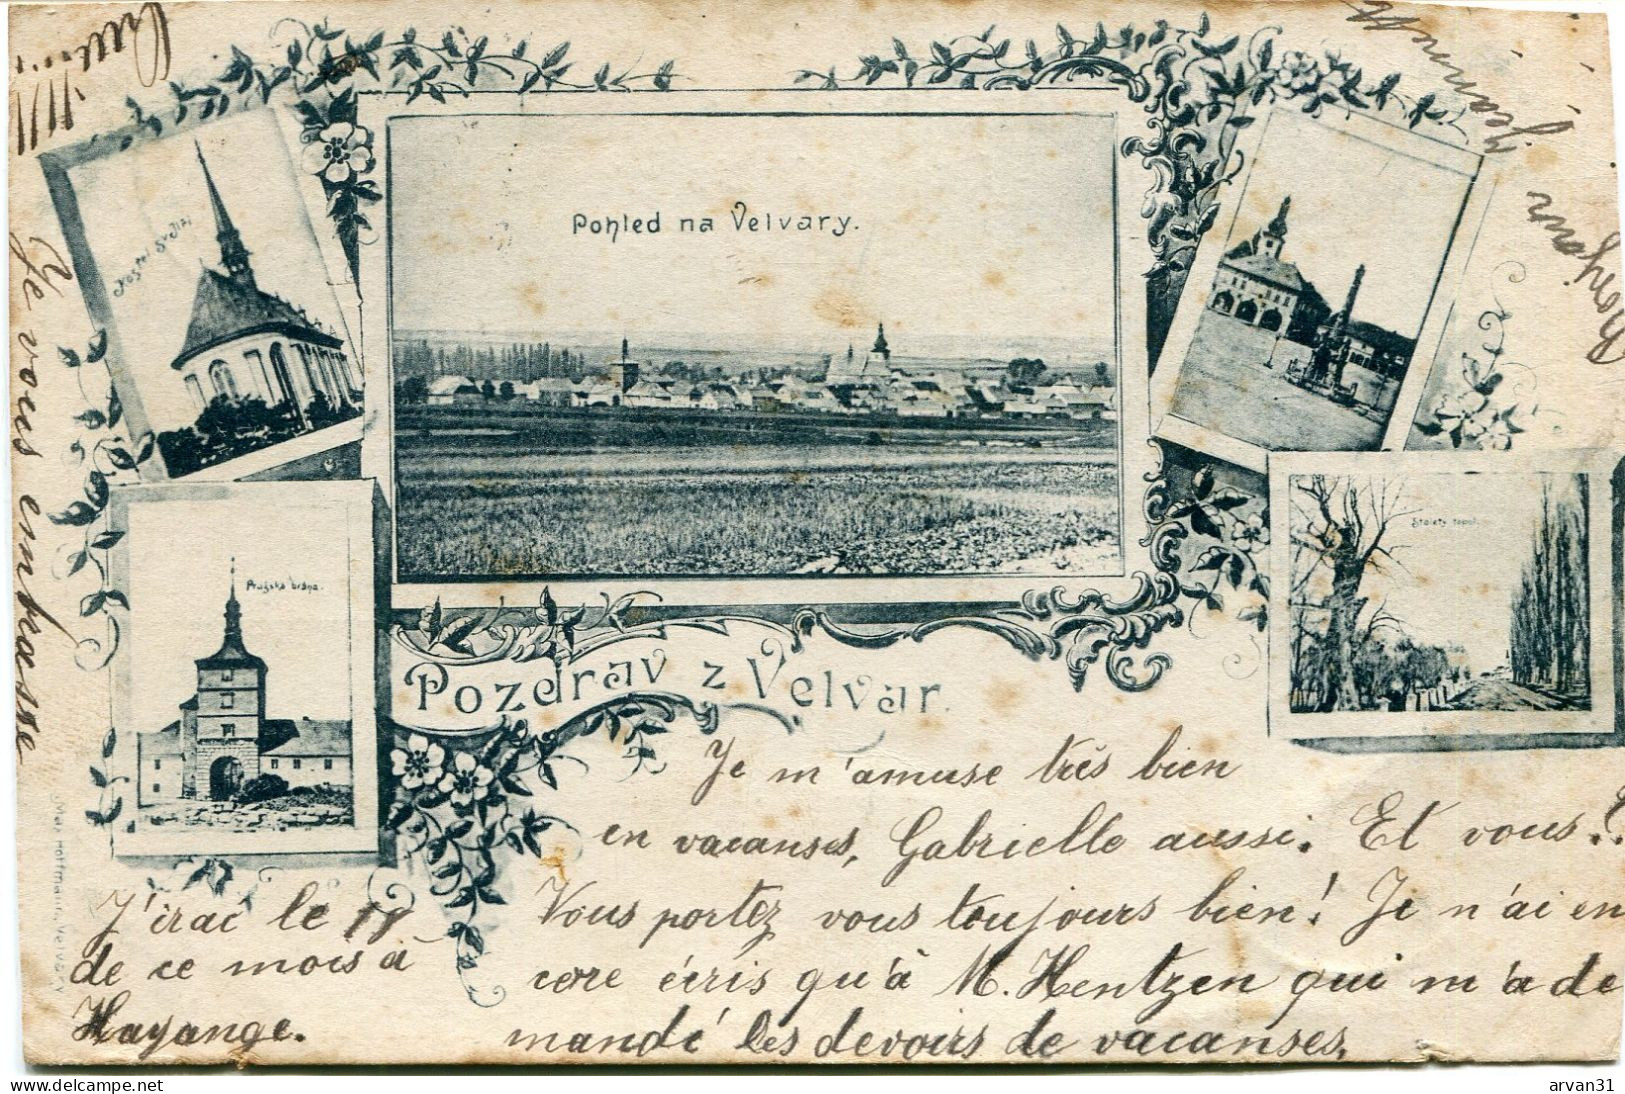 Bonjour
Jeannette
Kostel Sv. Jiří
Pohled na Velvary.
Pražská brána.
Stoletý topol.
Pozdrav z Velvar.
Je m'amuse trěs bien
en vacanses, Gabrielle aussi. Et vous.?
Vous portez vous toujours bien! Je n'ai en
core écris qu'â M. Hentzen qui m'a de
mandé les devoirs de vacanses.
J'irai le 18
de ce mois à
Hayange.
Je vous embrasse
Max Hoffmann, Velvary
delcampe.net
arvan31